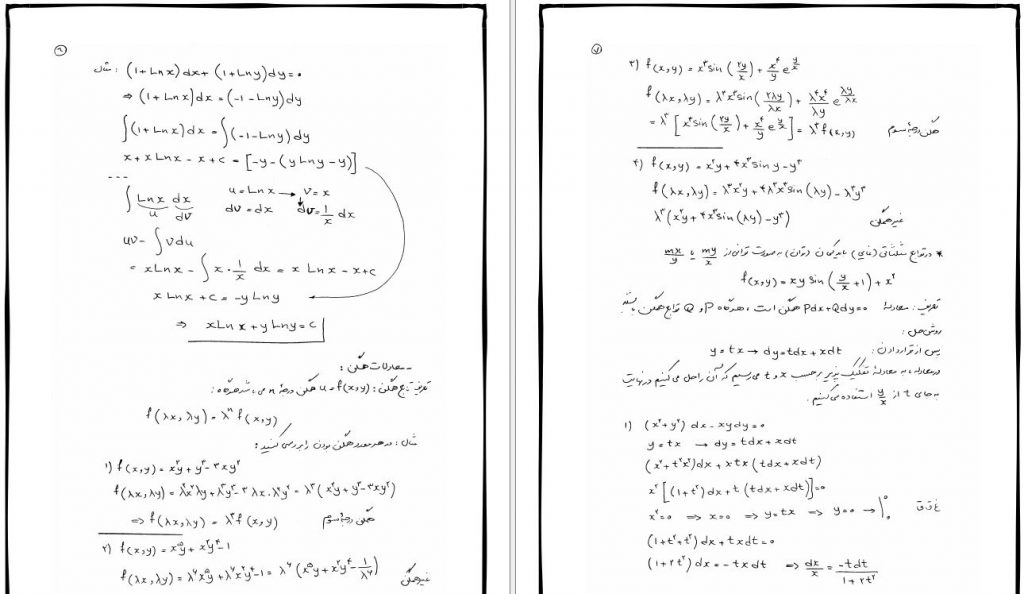 ۶
مثال : (1+Lnx)dx + (1+Lny)dy = ۰
⇒ (1+Lnx)dx = (-1-Lny)dy
∫(1+Lnx)dx = ∫(-1-Lny)dy
x + xLnx - x + c = [-y-(yLny-y)]
∫ Lnx dx u=Lnx → v=x
u dv dv=dx du=1/x dx
uv - ∫vdu
= xLnx - ∫x·1/x dx = x Lnx - x+c
x Lnx + c = -yLny
⇒ xLnx + yLny = c
ـ معادلات همگن :
تعریف تابع همگن : u=f(x,y) همگن درجهٔ n می باشد هرگاه :
f(λx,λy) = λⁿ f(x,y)
مثال : در هر مورد همگن بودن را بررسی کنید :
۱) f(x,y) = x²y + y³ - ۳xy²
f(λx,λy) = λ²x²λy + λ³y³ - ۳λx·λ²y² = λ³(x²y + y³ - ۳xy²)
⇒ f(λx,λy) = λ³f(x,y) همگن درجهٔ سوم
۲) f(x,y) = x⁵y + x²y⁴ - 1
f(λx,λy) = λ⁶x⁵y + λ⁶x²y⁴ - 1 = λ⁶(x⁵y + x²y⁴ - 1/λ⁶) غیرهمگن
۷
۳) f(x,y) = x³sin(۲y/x) + x⁴/y e^(y/x)
f(λx,λy) = λ³x³sin(۲λy/λx) + λ⁴x⁴/λy e^(λy/λx)
= λ³[x³sin(۲y/x) + x⁴/y e^(y/x)] = λ³f(x,y) همگن درجهٔ سوم
۴) f(x,y) = x²y + ۴x³sin y - y³
f(λx,λy) = λ³x²y + ۴λ³x³sin(λy) - λ³y³
λ³(x²y + ۴x³sin(λy) - y³) غیرهمگن
* در توابع مثلثاتی (نمایی) باید کمان (توان) به صورت توانی از my/x یا mx/y
f(x,y) = xy sin(y/x + 1) + x²
تعریف : معادلهٔ Pdx+Qdy=۰ همگن است ، هرگاه P و Q توابع همگن باشند
روش حل :
پس از قرار دادن : y=tx → dy=tdx+xdt
در معادله ، به معادلهٔ تفکیک پذیر بر حسب x و t می رسیم که آن را حل می کنیم در نهایت
به جای t از y/x استفاده می کنیم .
۱) (x²+y²)dx - xydy = ۰
y=tx → dy=tdx+xdt
(x²+t²x²)dx + xtx(tdx+xdt)
x²[(1+t²)dx + t(tdx+xdt)] = ۰
x²=۰ ⇒ x=۰ ⇒ y=tx ⇒ y=۰ → غ ق ق
(1+t²+t²)dx + txdt = ۰
(1+۲t²)dx = -txdt ⇒ dx/x = -tdt/1+۲t²